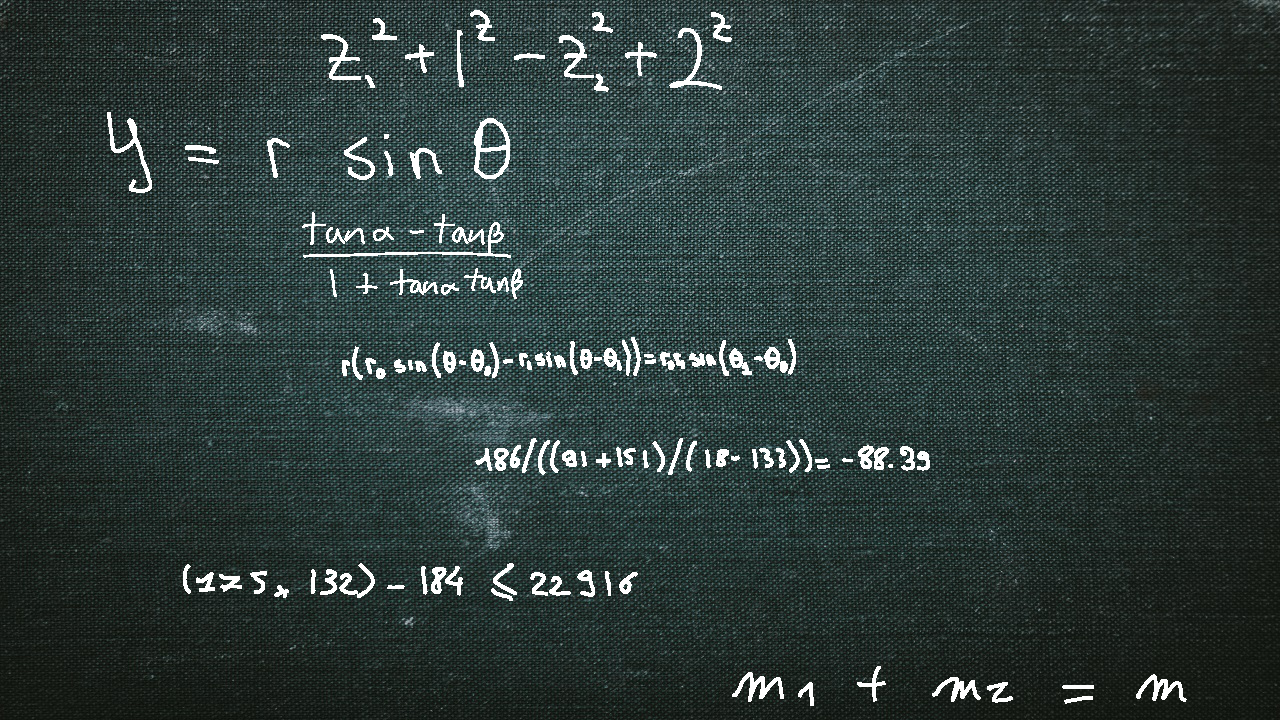 z₁² + 1² - z₂² + 2²
y = r sin θ
(tan α - tan β) / (1 + tan α tan β)
r(r₀ sin(θ-θ₀)-r₁ sin(θ-θ₁))=r₀r₁ sin(θ₁-θ₀)
186/((91+151)/(18-133))=-88.39
(175 × 132) - 184 ≤ 22916
m₁ + m₂ = m